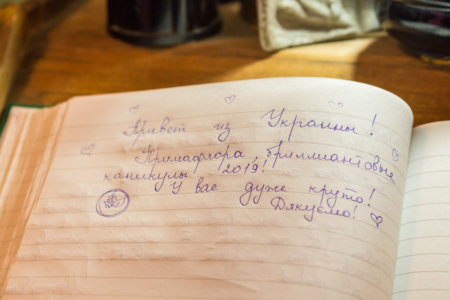 Привет из Украины!
Примафлора, бриллиантовые
каникулы! 2019!
У вас дуже круто!
Дякуємо!